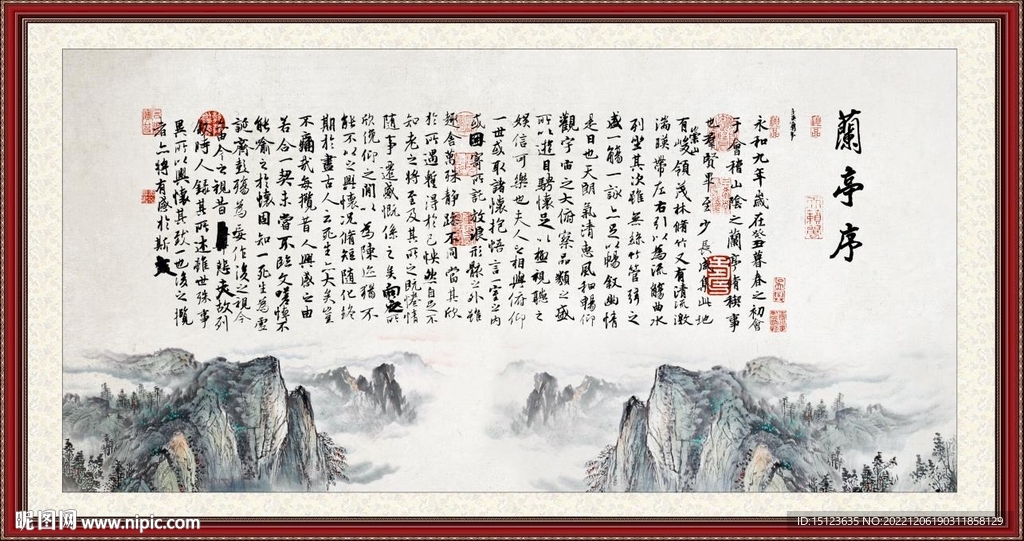 蘭亭序
永和九年歲在癸丑暮春之初會
于會稽山陰之蘭亭脩稧事
也羣賢畢至少長咸集此地
有崇山峻領茂林脩竹又有清流激
湍暎帶左右引以為流觴曲水
列坐其次雖無絲竹管弦之
盛一觴一詠亦足以暢敘幽情
是日也天朗氣清惠風和暢仰
觀宇宙之大俯察品類之盛
所以遊目騁懷足以極視聽之
娛信可樂也夫人之相與俯仰
一世或取諸懷抱悟言一室之內
或因寄所託放浪形骸之外雖
趣舍萬殊靜躁不同當其欣
於所遇暫得於己怏然自足不
知老之將至及其所之既惓情
隨事遷感慨係之矣向之所
欣俛仰之閒以為陳迹猶不
能不以之興懷況脩短隨化終
期於盡古人云死生亦大矣豈
不痛哉每攬昔人興感之由
若合一契未嘗不臨文嗟悼不
能喻之於懷固知一死生為虛
誕齊彭殤為妄作後之視今
亦由今之視昔悲夫故列
敘時人錄其所述雖世殊事
異所以興懷其致一也後之攬
者亦將有感於斯文
昵图网 www.nipic.com
ID:15123635 NO:20221206190311858129